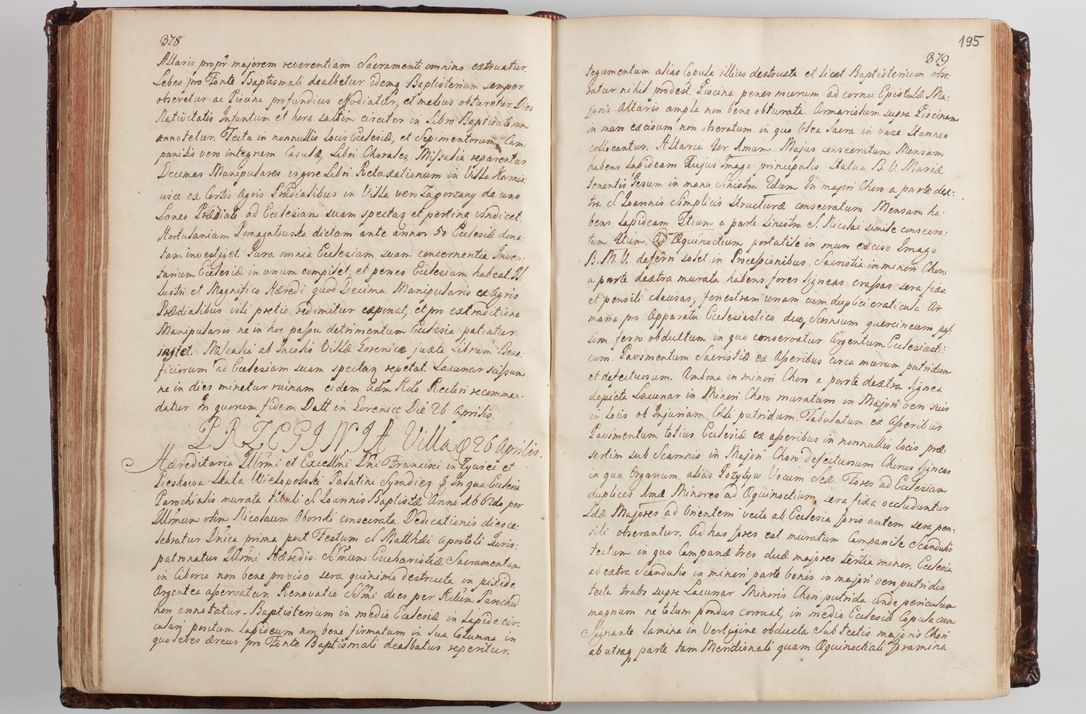 378
Altaris propr majorem reverentiam Sacramenti omnino extruatur
Lebes pro Fonte Baptismali dealbetur idemq Baptisterium semper
obseretur ac Piscina profundius effodiatur, et melius obturetur Dies
Nativitatis Infantum et hora saltim circiter in Libro Baptisatorum
annotetur. Tecta in nonnullis locis Ecclesiæ, et Sepimentorum, Cam
panilis vero integrum Casulæ, Libri Chorales Missalia reparentur
Decimas Manipulares vigore Libri Retaxationum in Villa
ex Certis Agris Prædialibus in Villa vero Zagorzany de uno
Laneo Prædiali ad Ecclesiam suam spectaq et pertinq vindicet
Hortulaniam Ponagabuska dictam ante annos 50 Ecclesiæ dona
tam investiget Jura omnia Ecclesiam suam concernentia Inven
tarium Ecclesiæ in unum compilet, et penes Ecclesiam habeat Il
lustri et Magnifico Hæredi quod Decima Manipularis ex Agris
Prædialibus vili pretio redimitur exponat, et pro extraditione
Manipularis ne in hoc passu detrimentum Ecclesia patiatur
instet. Missalia ab Incolis Villæ Lorenice juxta Librum Bene
ficiorum ad Ecclesiam suam spectaq repetat Lacunar scissum
ne in dies minetur ruinam eidem Adm Rdo Rectori recomman
datur In quorum fidem Datt in Lorenice Die 26 Aprilis
PRZEGINIA Villa 26 Aprilis
Hæreditaria Illrmi et Excellmi Dni Francisci in Zywiec et
Pieskowa Skala Wielopolski Palatini Syradieq in qua Ecclesia
Parochialis murata tituli S Joannis Baptistæ Anno 1660 do per
Illrmum olim Nicolaum Oborski consecrata Dedicationis dies ce
lebratur Dnica prima post Festum S Matthæi Apostoli Juris
patronatus Illrmi Hæredis. SSmum Eucharistiæ Sacramentum
in Ciborio non bene proviso sera quinimo destructa in pixide
Argentea asservatur Renovatio SSmi dies per Rdum Parochum
non annotatur. Baptisterium in medio Ecclesiæ in Lapide cir
culari positum Lapideum non bene firmatum in sua Columna in
quo lebes æreus pro Fonte Baptismali dealbatus reperitur.
195
379
tegumentum alias Copula illius destructa et licet Baptisterium obse
ratur nihil prodest Piscina penes murum ad cornu Epistolæ Ma
joris Altaris ampla non bene obturata. Armariolum supra Piscinam
in muro excisum non obseratum in quo Olea Sacra in vase stanneo
collocantur. Altaria Ter 1mum. Majus consecratum Mensam
habens lapideam hujus Imago principalis Statua B. V. Mariæ
tenentis Jesum in manu sinistra 2dum In majori Choro a parte dex
tra S Joannis simplicis structuræ consecratum Mensam ha
bens lapideam 3tium a parte sinistra S. Nicolai simile consecra
tum 4tum. Æquinoctium portatile in muro exciso Imago
B. M. V. deferri solet in Processionibus. Sacristia in minori Choro
a parte dextra murata habens fores ligneas crassas sera fixa
et pensili clausas, fenestram unam cum duplici craticula Ar
maria pro Apparatu Ecclesiastico duo, Scrinium quercineum pas
sim ferro obductum in quo conservatur Argentum Ecclesiasti
cum. Pavimentum Sacristiæ ex Asseribus circa murum putridum
et defectuosum. Ambona in minori Choro a parte dextra lignea
depicta Lacunar in Minori Choro muratum in Majori vero suis
in locis ob Injuriam Aeris putridum. Tabulatum ex Asseribus
Pavimentum totius Ecclesiæ ex asseribus in nonnullis locis præ
sertim sub Scamnis in Majori Choro defectuosum Chorus ligneus
in quo Organum, alias Pozytyw Vocum Sex Fores ad Ecclesiam
duplices 1mæ Minores ad Æquinoctium, sera fixa occluduntur
2dæ Majores ad Orientem vecte ab Ecclesia foris autem sera pen
sili obserantur. Ad has fores est muratum Campanile Scandulis
tectum in quo Campanæ tres duæ majores tertia minor. Ecclesia
ad extra Scandulis in minori parte bonis in majori vero putridis
tecta trabs supra Lacunar Minoris Chori putrida unde periculum
magnum ne totum pondus corruat, in medio Ecclesiæ Copula cum
Signante lamina in Vertigine obducta Sub Tectis majoris Chori
ab utraq parte tam Meridionali quam Æquinoctiali foramina